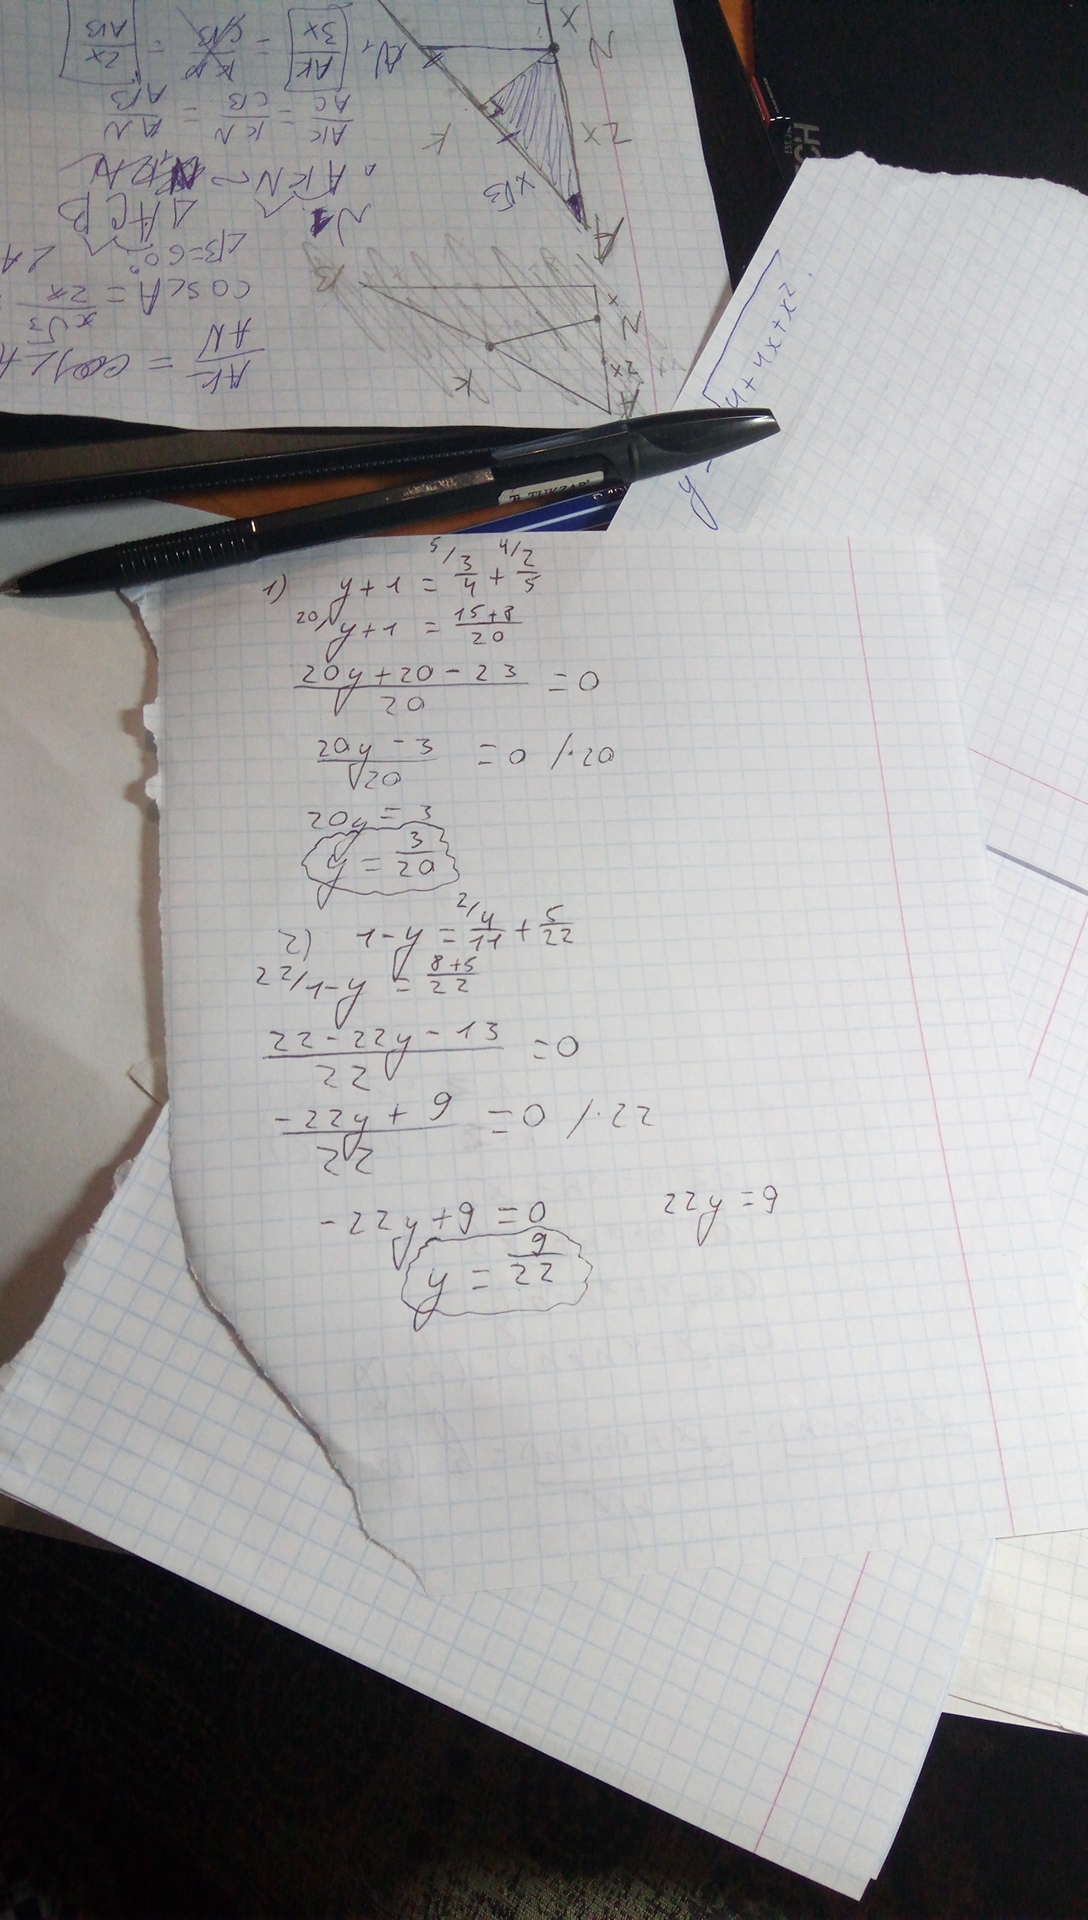 1) y + 1 = ⁵/ 3/4 + ⁴/ 2/5
²⁰/ y + 1 = (15 + 8)/20
(20y + 20 - 23)/20 = 0
(20y - 3)/20 = 0 /·20
20y = 3
y = 3/20
2) 1 - y = ²/ 4/11 + 5/22
22/ 1 - y = (8 + 5)/22
(22 - 22y - 13)/22 = 0
(-22y + 9)/22 = 0 /·22
-22y + 9 = 0 22y = 9
y = 9/22
y √4 + 4x + x²
AK/AN = cos∠A
cos∠A = x√3/2x
∠B = 60° ∠A
△ACB
AK/AC = KN/CB = AN/AB
AK/3x = KN/CB = 2x/AB
A
x√3
2x
K
N
x
N₁
A
2x
N
x
K
B